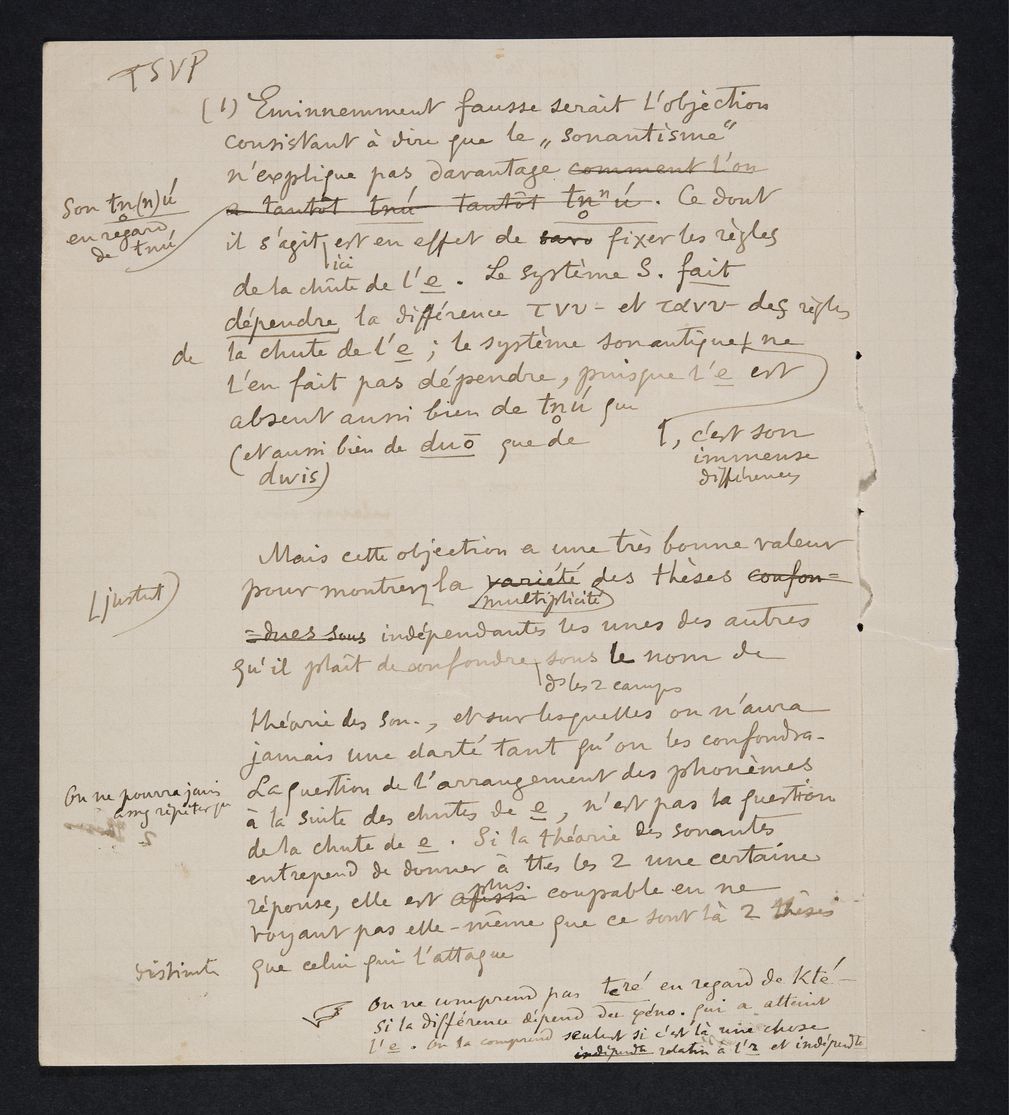 TSVP
(1) Eminnemment fausse serait l'objection
consistant à dire que le „sonantisme“
n'explique pas davantage comment l'on
a tantôt tnú tantôt tn̥ⁿú. Ce dont
Son tn̥(n)ú
en regard
de tnú
il s'agit ici est en effet de savo fixer les règles
de la chûte de l'e. Le système S. fait
dépendre la différence τνν- et τανν- des règles
de la chute de l'e ; le système sonantique ne
l'en fait pas dépendre, puisque l'e est
absent aussi bien de tnú que
(et aussi bien de duō que de
dwis)
, c'est son
immense
différence
Mais cette objection a une très bonne valeur
pour montrer la variété des thèses confon=
multiplicité
[justut)
=dues sous indépendantes les unes des autres
qu'il plaît de confondre sous le nom de
ds les 2 camps
théorie des son., et sur lesquelles on n'aura
jamais une clarté tant qu'on les confondra.
La question de l'arrangement des phonèmes
On ne pourra jamais
assez répéter que
à la suite des chutes de e, n'est pas la question
de la chute de e. Si la théorie des sonantes
entreprend de donner à ttes les 2 une certaine
réponse, elle est aussi plus coupable en ne
voyant pas elle-même que ce sont là 2 thèses
distinctes que celui qui l'attaque
On ne comprend pas teré en regard de Kté-
Si la différence dépend du phéno. qui a atteint
l'e. On la comprend seulemt si c'est là une chose
indépendte relative à l'r et indépendte